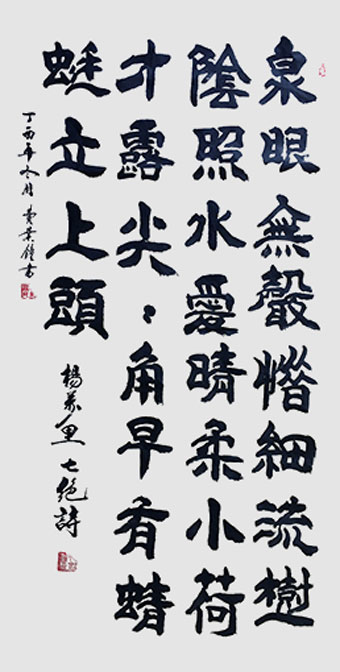 泉眼無聲惜細流樹
陰照水愛晴柔小荷
才露尖〻角早有蜻
蜓立上頭
楊萬里七絕詩
丁酉年冬月 書